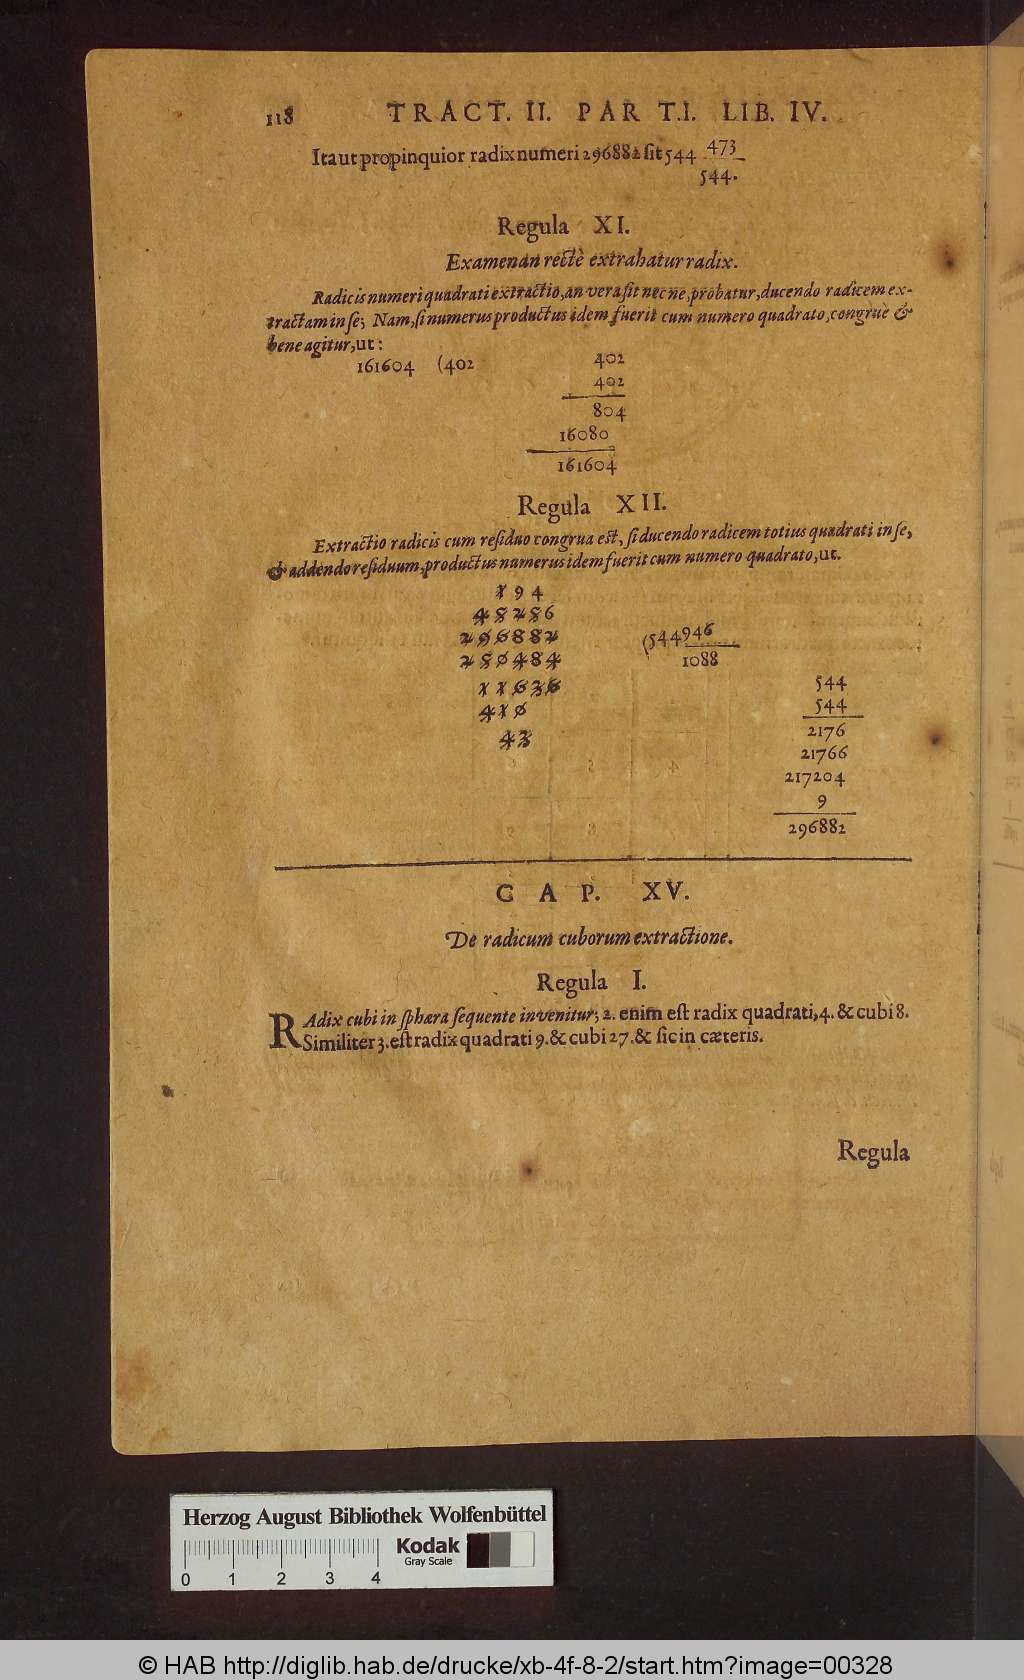 118 TRACT. II. PAR T.I. LIB. IV.
Ita ut propinquior radix numeri 296882 sit 544 473
544.
Regula XI.
Examen an rectè extrahatur radix.
Radicis numeri quadrati extractio, an vera sit nec ne, probatur, ducendo radicem ex-
tractam in se; Nam, si numerus productus idem fuerit cum numero quadrato, congruè &
bene agitur, ut:
161604 (402 402
402
804
16080
161604
Regula XII.
Extractio radicis cum residuo congrua est, si ducendo radicem totius quadrati in se,
& addendo residuum, productus numerus idem fuerit cum numero quadrato, ut.
1 9 4
4 8 2 8 6
2 9 6 8 8 2 (544 946
2 8 0 4 8 4 1088
1 1 6 3 6 544
4 1 0 544
4 3 2176
21766
217204
9
296882
C A P. XV.
De radicum cuborum extractione.
Regula I.
RAdix cubi in sphæra sequente invenitur; 2. enim est radix quadrati, 4. & cubi 8.
Similiter 3. est radix quadrati 9. & cubi 27. & sic in cæteris.
Regula
Herzog August Bibliothek Wolfenbüttel
Kodak
Gray Scale
0 1 2 3 4
© HAB http://diglib.hab.de/drucke/xb-4f-8-2/start.htm?image=00328